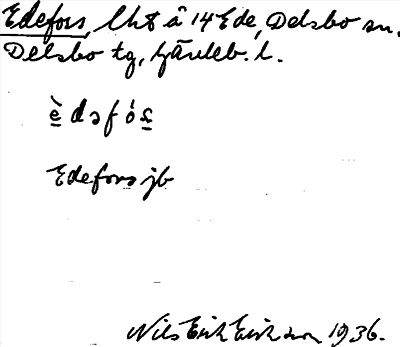 Edefors, lht å 14 Ede, Delsbo sn.
Delsbo tg, Gävleb. l.
Edefors jb
Nils Erik Erikson 1936.